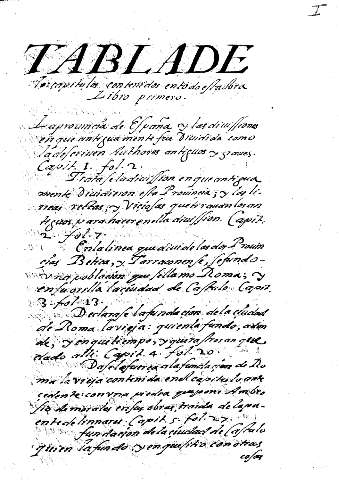 I
TABLA DE
los capitulos contenidos en todo esta obra
Libro primero.
La provincia de España y las divissiones
en que antiguamente fue dividida como
la descriven Authores antiguos y graves.
Capit. 1. fol. 2.
Tratase la division en que antigua
mente dividieron esta Provincia; y las li
neas rectas; y viciosas que tiravan los an
tiguos, para hacer en ella divission. Capit.
2. fol. 7.
En la linea que divide las dos Provin
cias Betica, y Tarraconense, se fundo
una poblacion que se llamo Roma; y
en su orilla la ciudad de Castulo. Capit.
3. fol. 13.
Declarase la fundacion de la ciudad
de Roma la vieja: quien la fundo, adon
de; y en que tiempo, y que rastro an que
dado alli. Capit. 4. fol. 20.
Dase la fuerça a la fundacion de Ro
ma la vieja contenida en el capitulo ante
cedente con una piedra que pone Ambro
sio de morales en sus obras, traida de la pu
ente de linares. Capit. 5. fol. 27.
fundacion de la ciudad de Castulo
quien la fundo; y en que sitio con otras
cosas